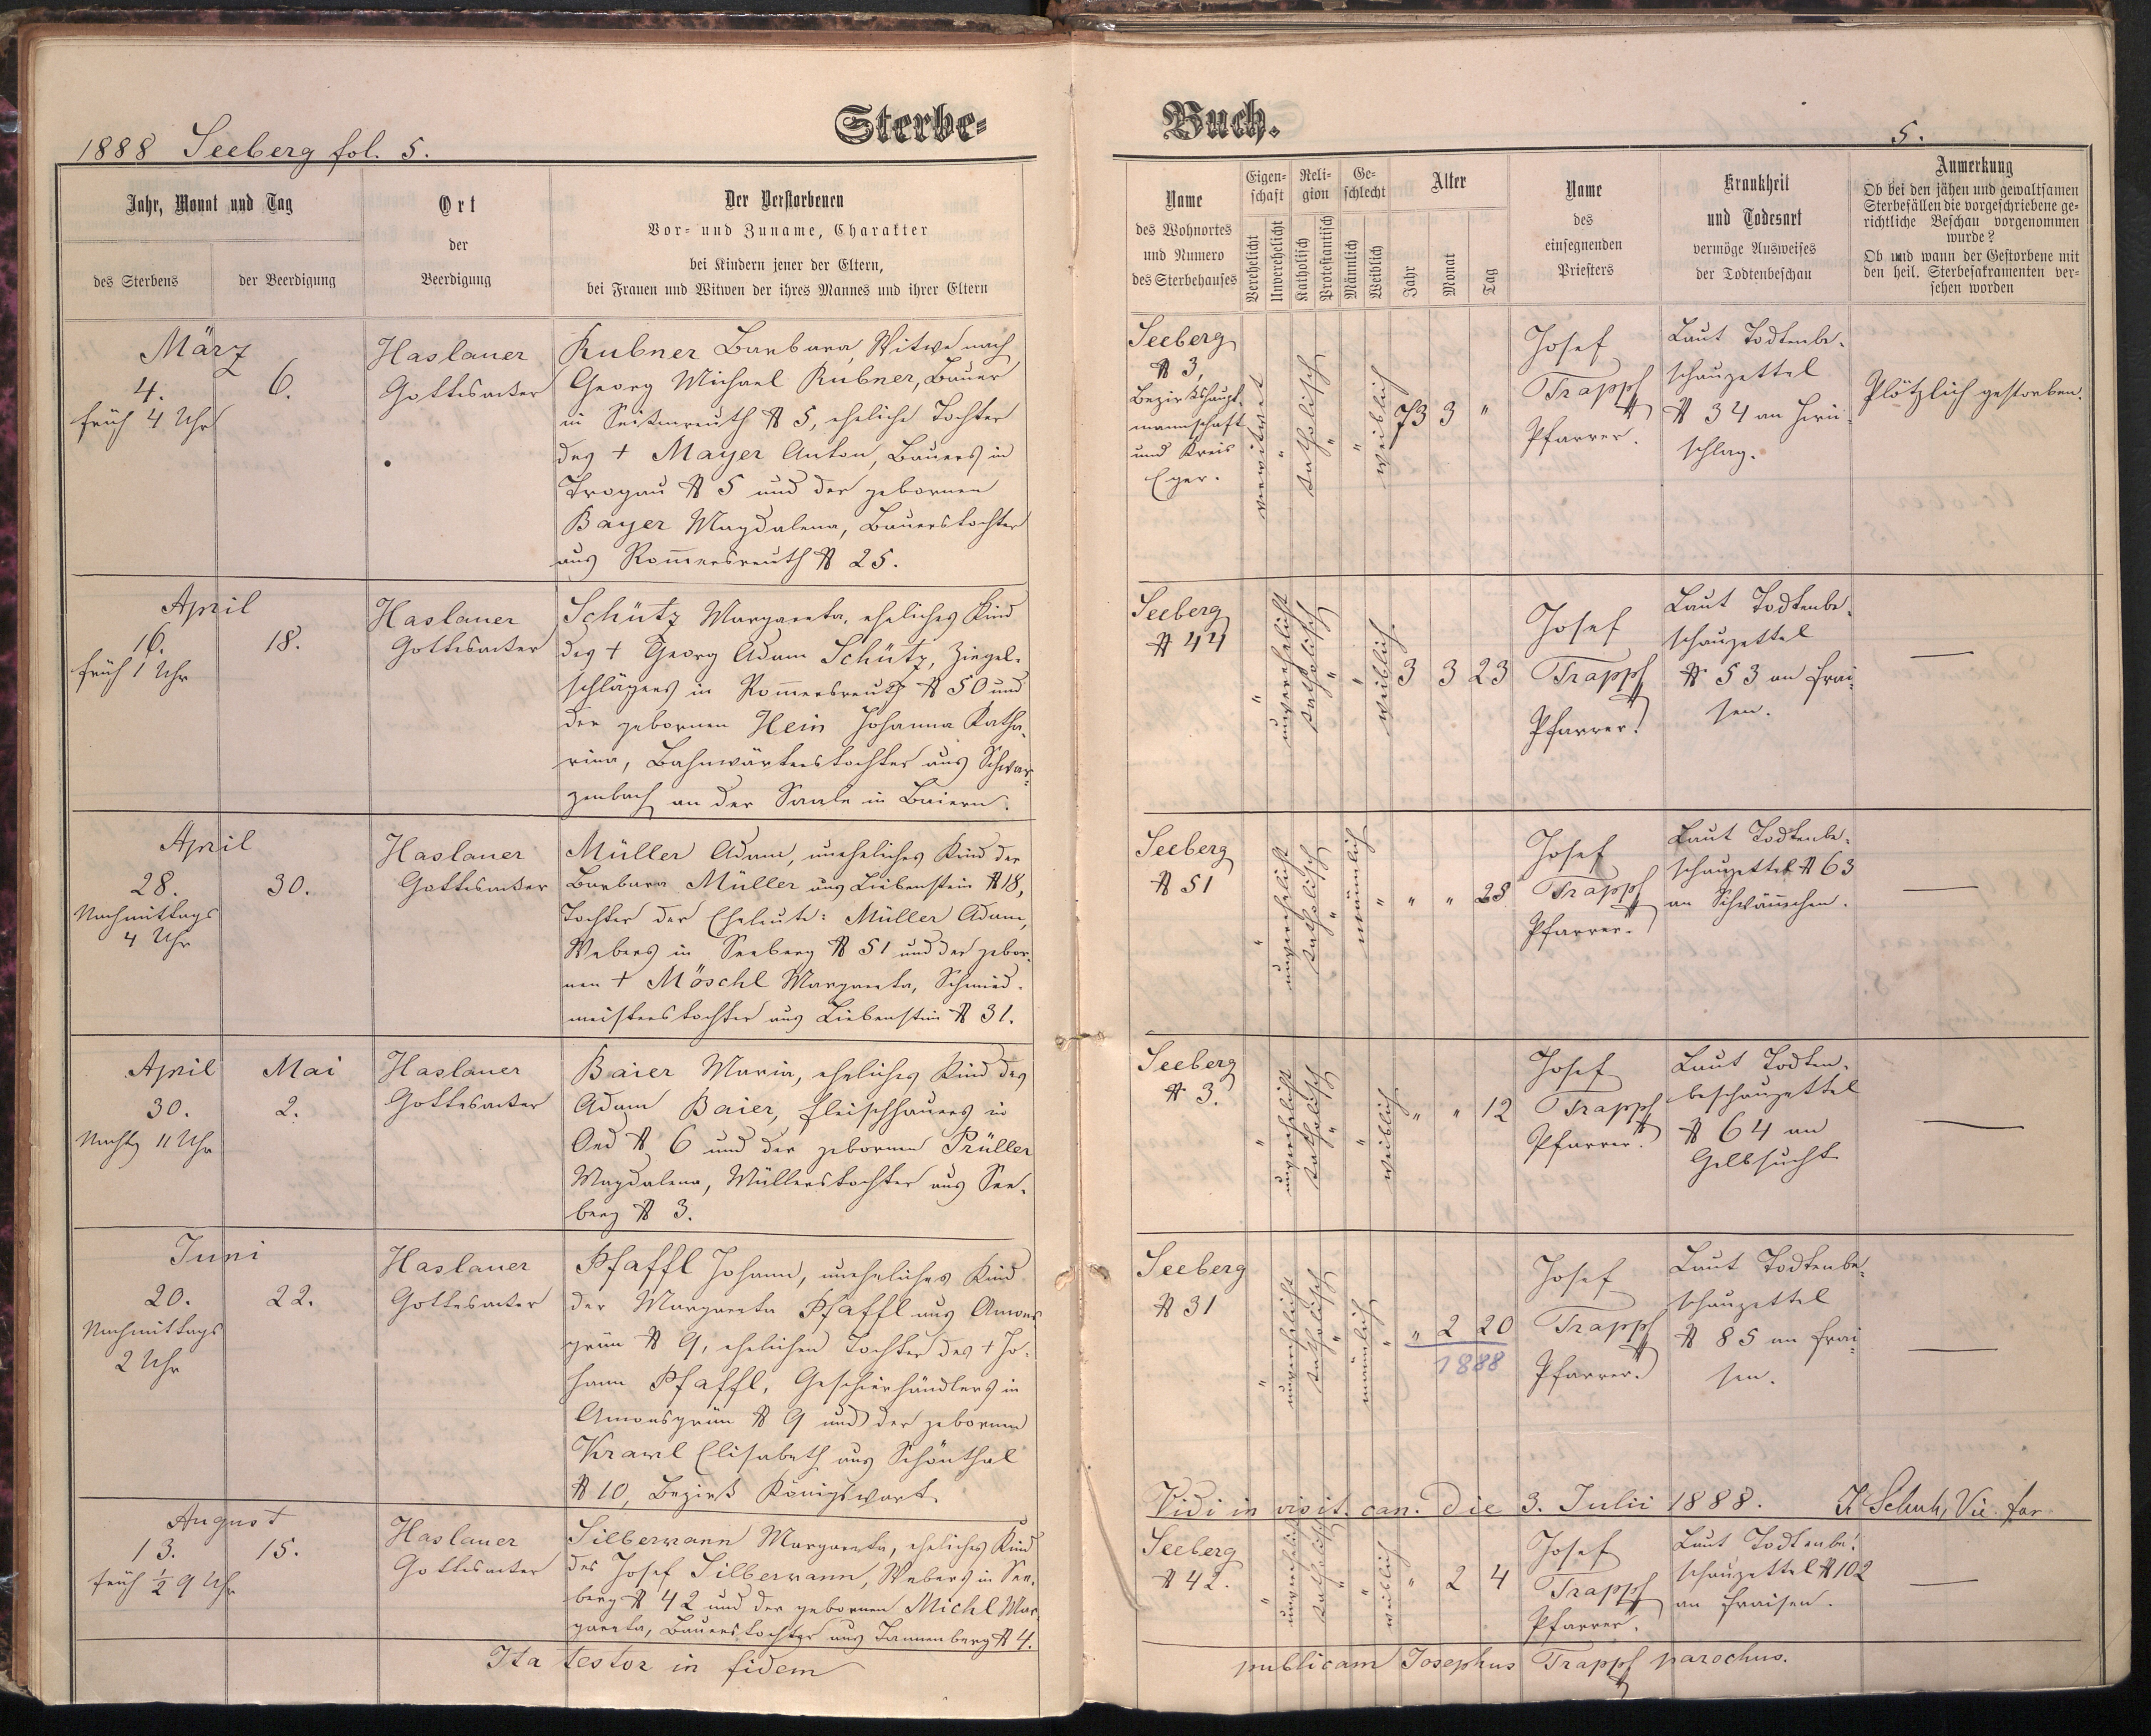 Sterbe-
Buch.
1888 Seeberg fol. 5.
5.
Jahr, Monat und Tag
des Sterbens
der Beerdigung
Ort
der
Beerdigung
Der Verstorbenen
Vor- und Zuname, Charakter
bei Kindern jener der Eltern,
bei Frauen und Witwen der ihres Mannes und ihrer Eltern
Name
des Wohnortes
und Numero
des Sterbehauses
Eigen-
schaft
Verehelicht
Unverehelicht
Reli-
gion
Katholisch
Protestantisch
Ge-
schlecht
Männlich
Weiblich
Alter
Jahr
Monat
Tag
Name
des
einsegnenden
Priesters
Krankheit
und Todesart
vermöge Ausweises
der Todtenbeschau
Anmerkung
Ob bei den jähen und gewaltsamen
Sterbefällen die vorgeschriebene ge-
richtliche Beschau vorgenommen
wurde?
Ob und wann der Gestorbene mit
den heil. Sterbesakramenten ver-
sehen worden
März
4.
früh 4 Uhr
6.
Haslauer
Gottesacker
Kubner Barbara, Witwe nach
Georg Michael Kubner, Bauer
in Seitenreuth № 5, eheliche Tochter
des + Mayer Anton, Bauers in
Trogau № 5 und der gebornen
Bayer Magdalena, Bauerstochter
aus Rom̅ersreuth № 25.
Seeberg
№ 3,
Bezirkshaupt-
mannschaft
und Kreis
Eger.
verwitwet
"
katholisch
"
"
weiblich
73 3 "
Josef
Trappf
Pfarrer.
Laut Todtenbe-
schauzettel
№ 34 an Hirn-
schlag.
Plötzlich gestorben.
April
16.
früh 1 Uhr
18.
Haslauer
Gottesacker
Schütz Margareta, eheliches Kind
des + Georg Adam Schütz, Ziegel-
schlägers in Rom̅ersreuth № 50 und
der gebornen Hein Johanna Katha-
rina, Bahnwärterstochter aus Schwar-
zenbach an der Saale in Baiern.
Seeberg
№ 44
"
unverehelicht
katholisch
"
"
weiblich.
3 3 23
Josef
Trappf
Pfarrer.
Laut Todtenbe-
schauzettel
№ 53 an Frai-
sen.
—
April
28.
Nachmittags
4 Uhr
30.
Haslauer
Gottesacker
Müller Adam, uneheliches Kind der
Barbara Müller aus Liebenstein № 18,
Tochter der Eheleute: Müller Adam,
Webers in Seeberg № 51 und der gebor-
nen + Möschl Margareta, Schmied-
meisterstochter aus Liebenstein № 31.
Seeberg
№ 51
"
unverehelicht
katholisch
"
männlich
"
" " 28
Josef
Trappf
Pfarrer.
Laut Todtenbe-
schauzettel № 63
an Schwäm̅chen.
—
April
30.
Nachts 11 Uhr
Mai
2.
Haslauer
Gottesacker
Baier Maria, eheliches Kind des
Adam Baier, Fleischhauers in
Oed № 6 und der gebornen Prüller
Magdalena, Müllerstochter aus See-
berg № 3.
Seeberg
№ 3.
"
unverehelicht
katholisch
"
"
weiblich
" " 12
Josef
Trappf
Pfarrer.
Laut Todten-
beschauzettel
№ 64 an
Gelbsucht
—
Juni
20.
Nachmittags
2 Uhr
22.
Haslauer
Gottesacker
Pfaffl Johann, uneheliches Kind
der Margareta Pfaffl aus Amons-
grün № 9, ehelichen Tochter des + Jo-
hann Pfaffl, Geschierhändlers in
Amonsgrün № 9 und der gebornen
Krawl Elisabeth aus Schönthal
№ 10, Bezirk Königswart.
Seeberg
№ 31
"
unverehelicht
katholisch
"
männlich
"
" 2 20
1888
Josef
Trappf
Pfarrer.
Laut Todtenbe-
schauzettel
№ 85 an Frai-
sen.
—
Vidi in visit. can. die 3. Julii 1888. Schuh, Vic. for.
August
13.
früh ½ 9 Uhr
15.
Haslauer
Gottesacker
Silbermann Margareta, eheliches Kind
des Josef Silbermann, Webers in See-
berg № 42 und der gebornen Michl Mar-
gareta, Bauerstochter aus Tannenberg № 4.
Seeberg
№ 42.
"
unverehelicht
katholisch
"
"
weiblich
" 2 4
Josef
Trappf
Pfarrer.
Laut Todtenbe-
schauzettel № 102
an Fraisen.
—
Ita testor in fidem publicam Josephus Trappf parochus.